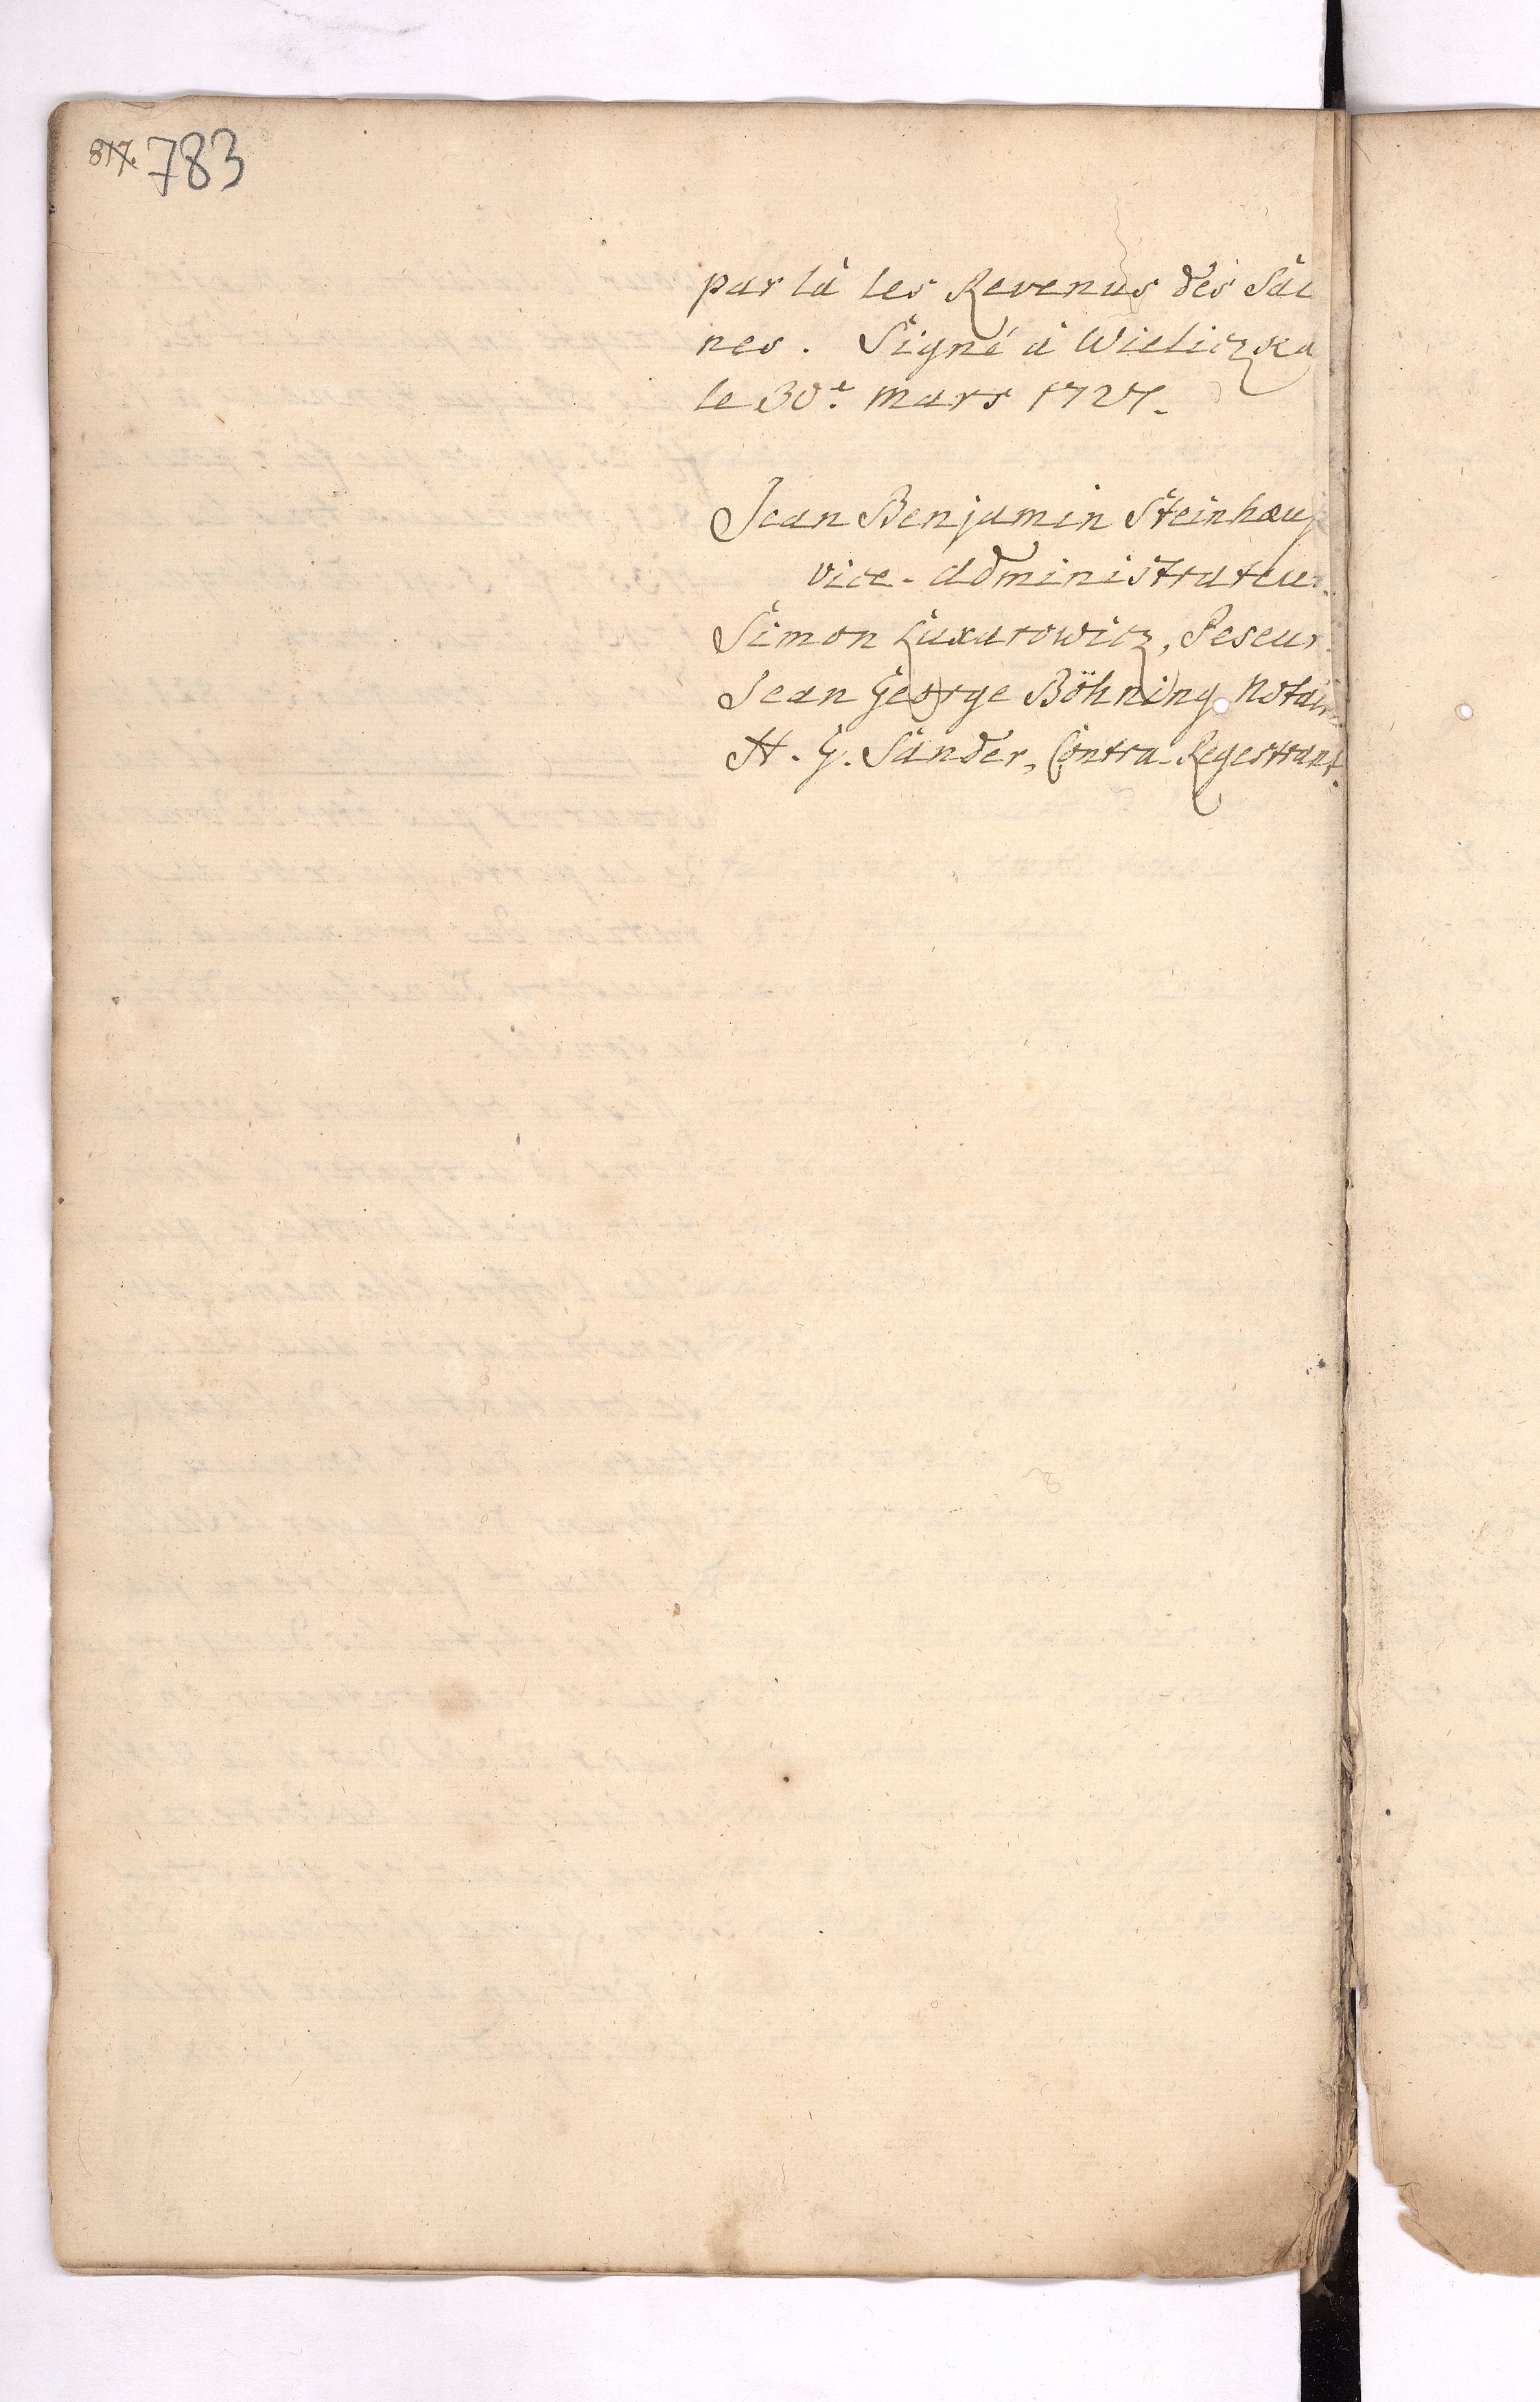 817. 783
par là les Revenus des Sal
nes. Signé à Wieliczka
le 30.e Mars 1727.
Jean Benjamin Steinhauf
vice-administrateur.
Simon Luxarowicz, Peseur
Jean George Böhning Notair
H. G. Sander, Contra-Regestrant.